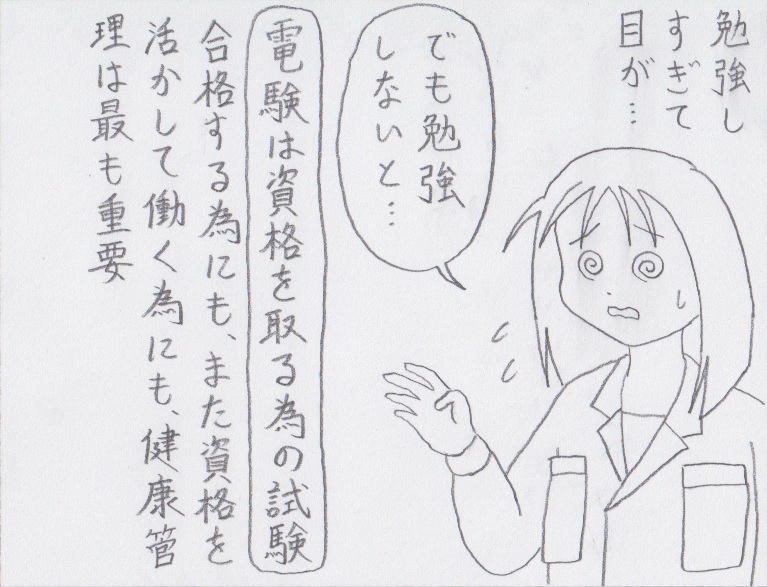 勉強し
すぎて
目が…
でも勉強
しないと…
電験は資格を取る為の試験
合格する為にも、また資格を
活かして働く為にも、健康管
理は最も重要